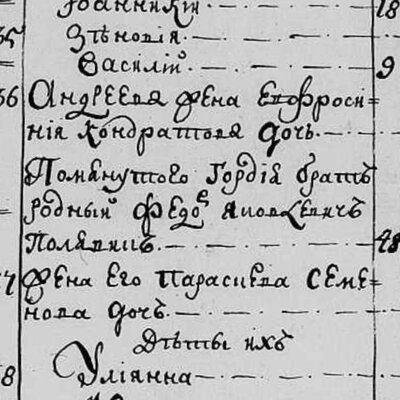 Іоанникій 18
35 Зѣновія
Василій 9
36 Андреева жена Евфроси=
нія Кондратова дочь
Помянутого Гордія братъ
родный Федоръ Яковлевичъ
Полявиц 48
37 жена его Параскева Семе=
нова дочь
Дѣти ихъ
38 Уліанна